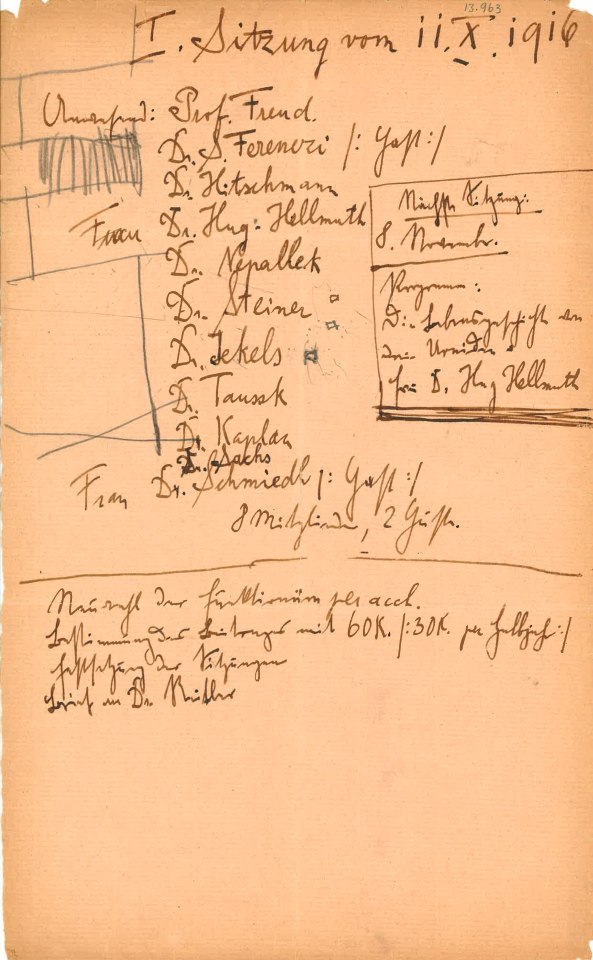 13.963
I. Sitzung vom 11. X. 1916
Anwesend: Prof. Freud.
Dr. S. Ferenczi /: Gast :/
Dr. Hitschmann
Frau Dr. Hug-Hellmuth
Dr. Nepallek
Dr. Steiner
Dr. Jekels
Dr. Tausk
Dr. Kaplan
Dr. Sachs
Frau Dr. Schmiedl /: Gast :/
8 Mitglieder, 2 Gäste.
Nächste Sitzung:
8. November.
Programm:
Die Lebensgeschichte von
drei Uraniden
Frau D. Hug Hellmuth
Neuwahl der Funktionäre per accl.
Bestimmung des Beitrages mit 60K. /: 30K. per Halbjahr :/
Festsetzung der Sitzungen
Brief an Dr.